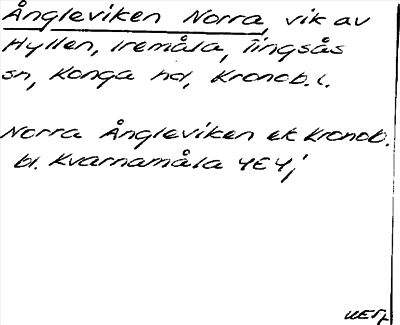 Ångleviken Norra, vik av
Hyllen, Iremåla, Tingsås
sn, Konga hd, Kronob. l.
Norra Ångleviken ek Kronob.
bl. Kvarnamåla 4E4j